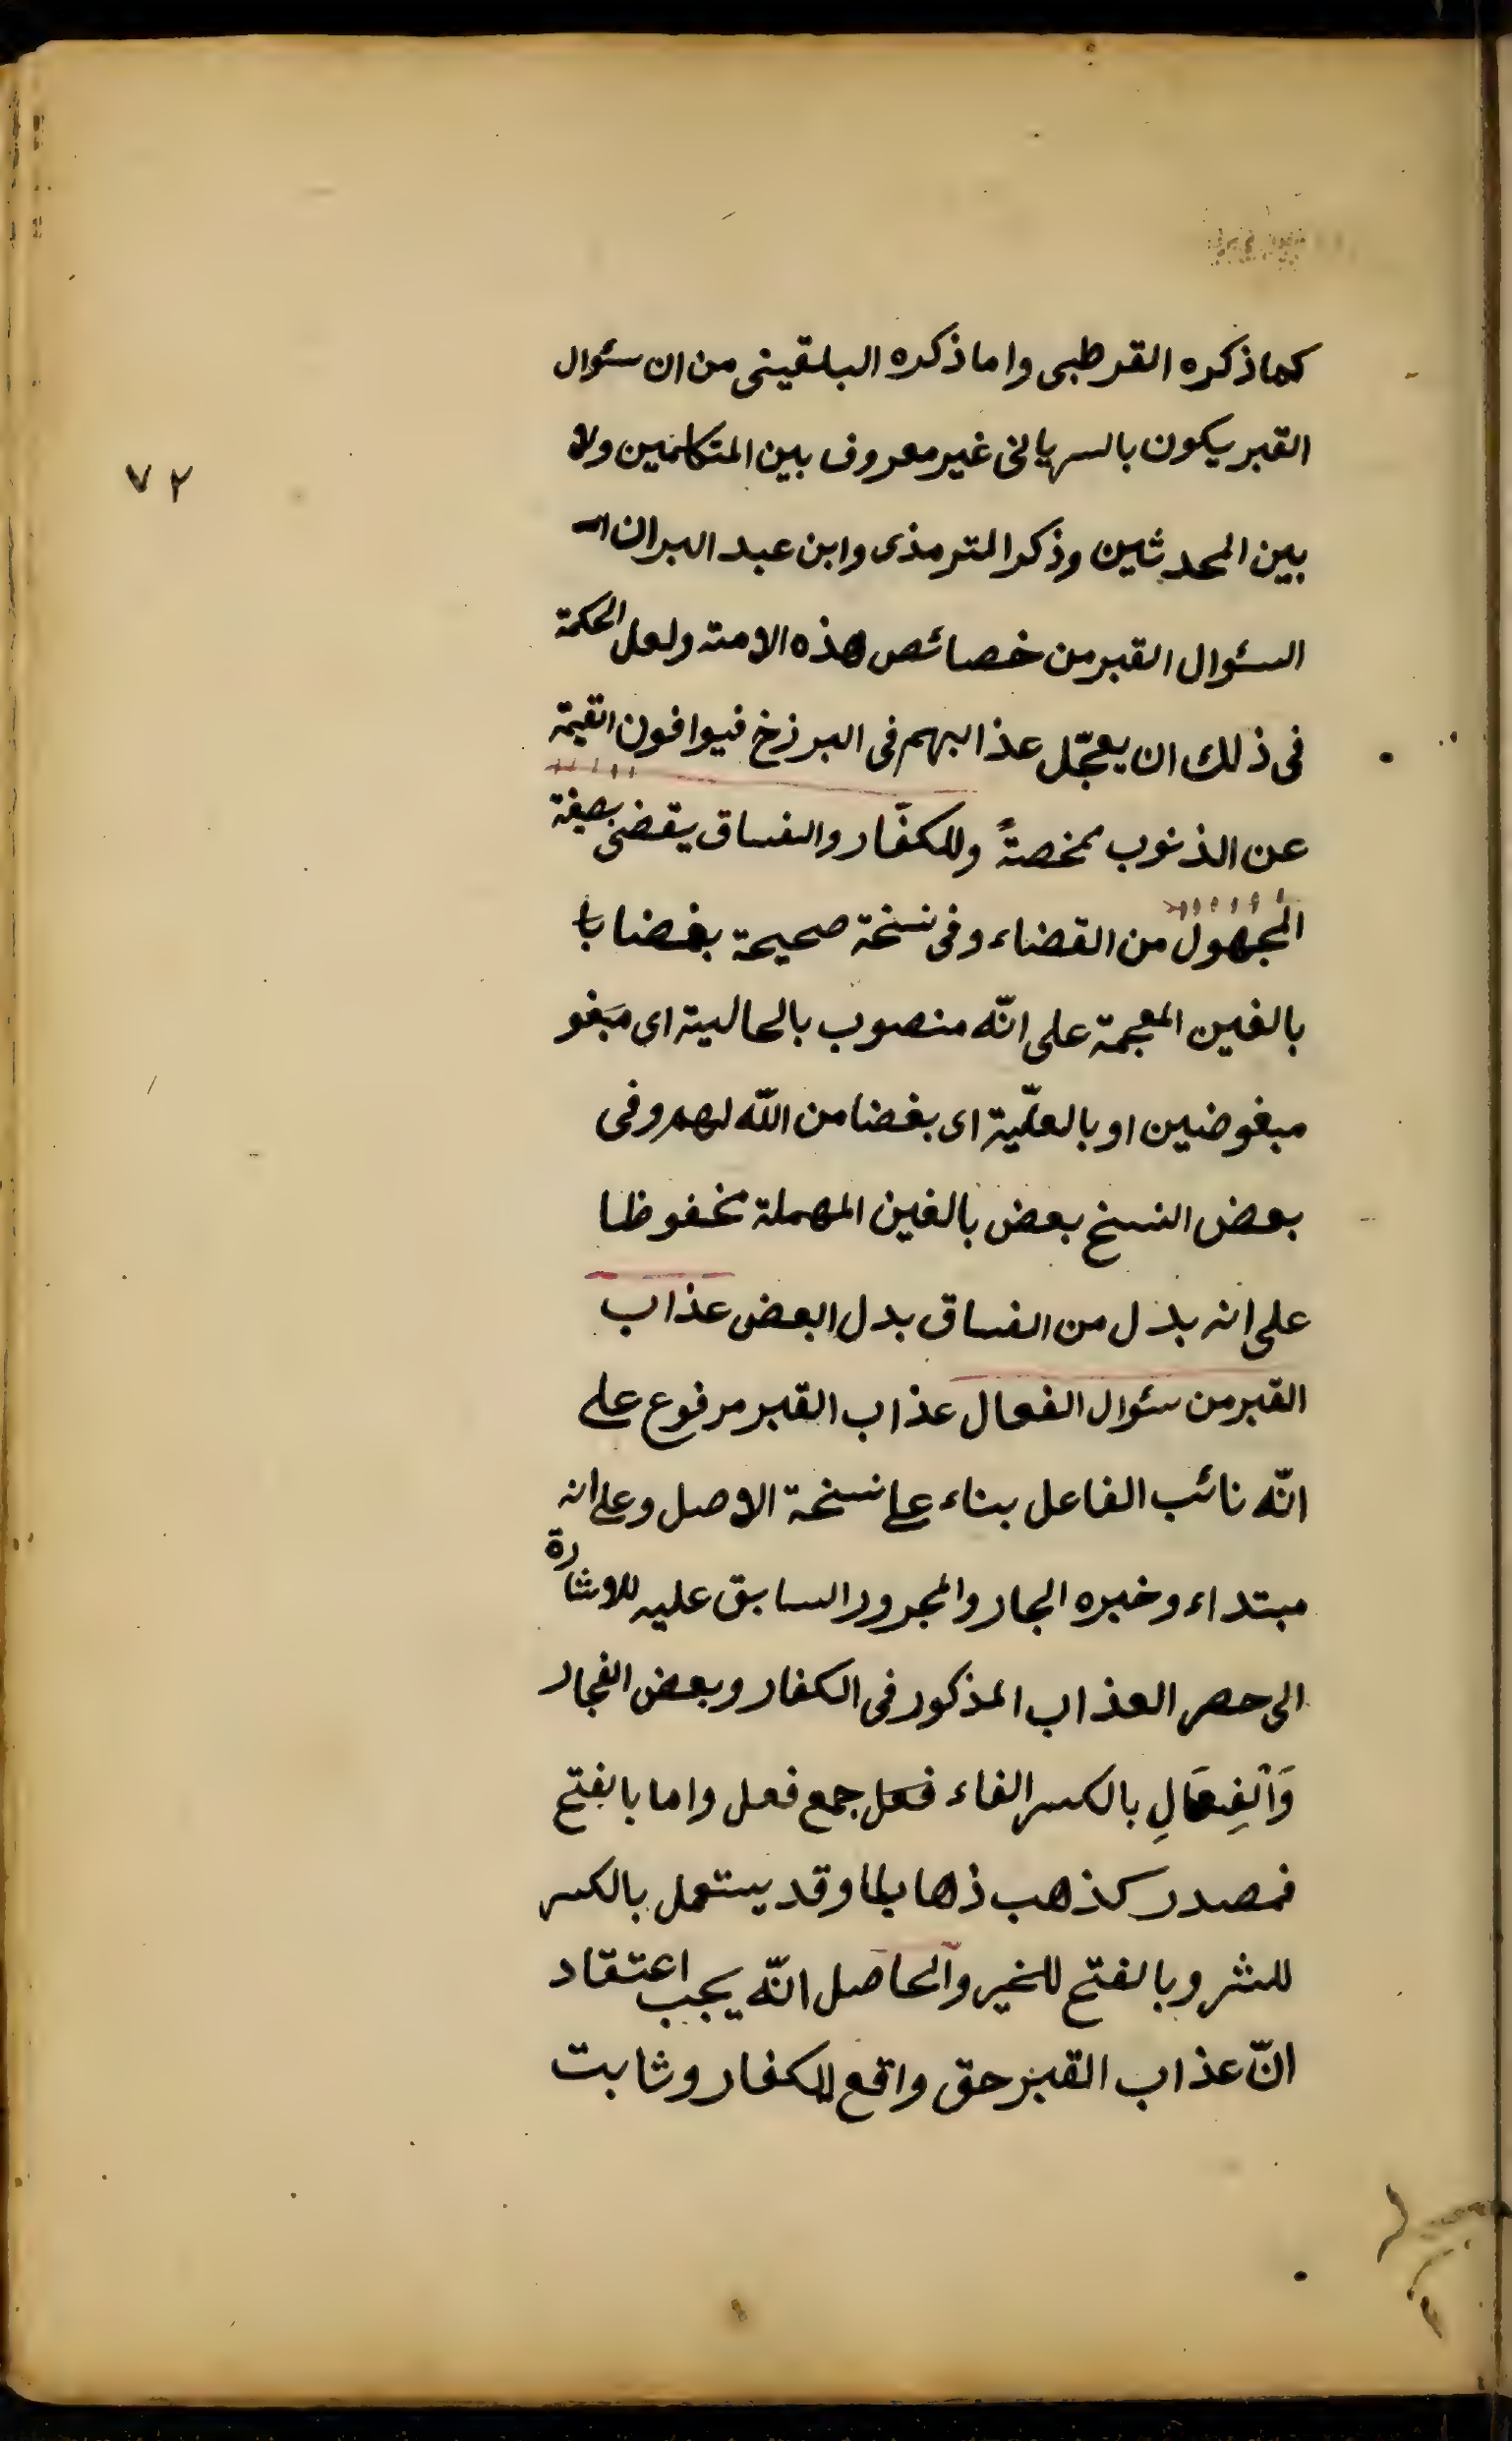 كما ذكره القرطبى واما ذكره البلقينى من ان سئوال
٧٢
القبر يكون بالسريانى غير معروف بين المتكلمين ولا
بين المحدثين وذكر الترمذى وابن عبد البر ان
السئوال القبر من خصائص هذه الامة ولعل الحكمة
فى ذلك ان يعجّل عذابهم فى البرزخ فيوافون القيمة
عن الذنوب ممخصةً وللكفّار والفساق يقضى بصيغة
المجهول من القضاء وفى نسخة صحيحة بغضا با
بالغين المعجمة على انّه منصوب بالحالية اى مبغو
مبغوضين او بالعلّية اى بغضا من الله لهم وفى
بعض النسخ بعض بالغين المهملة مخفوظا
على انه بدل من الفساق بدل البعض عذاب
القبر من سئوال الفعال عذاب القبر مرفوع على
انّه نائب الفاعل بناء على نسخة الاصل وعلى انه
مبتداء وخبره الجار والمجرور السابق عليه للاشارة
الى حصر العذاب المذكور فى الكفار وبعض الفجار
وَالفِعَالِ بالكسر الفاء فعل جمع فعل واما بالفتح
فمصدر كذهب ذهابا وقد يستعمل بالكسر
للشر وبالفتح للخير والحاصل انّه يجب اعتقاد
انّ عذاب القبر حق واقع للكفار وثابت